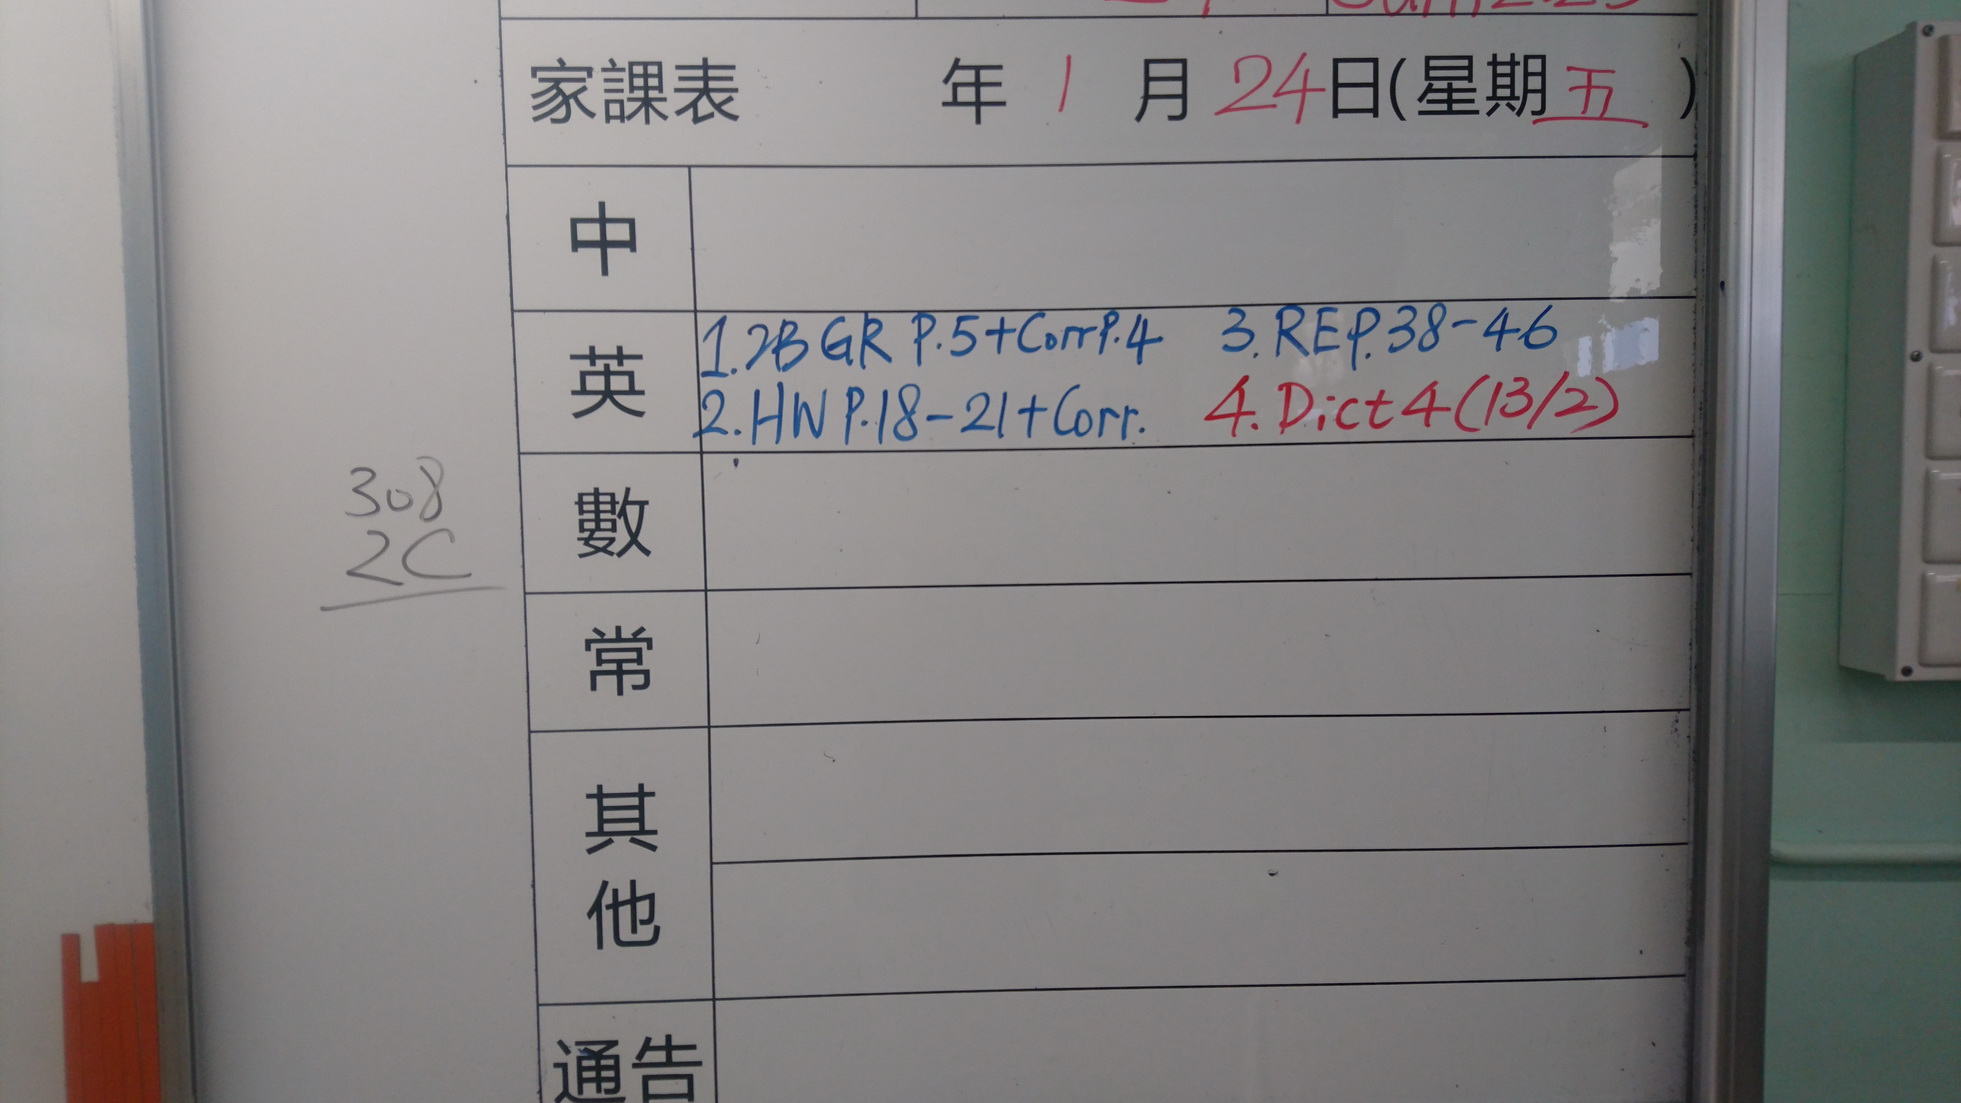 家課表 年 1 月 24 日(星期五)
中
英
1. 2B GR P.5+Corr P.4 3. RE P.38-46
2. HW P.18-21+Corr. 4. Dict 4 (13/2)
數
308
2C
常
其他
通告